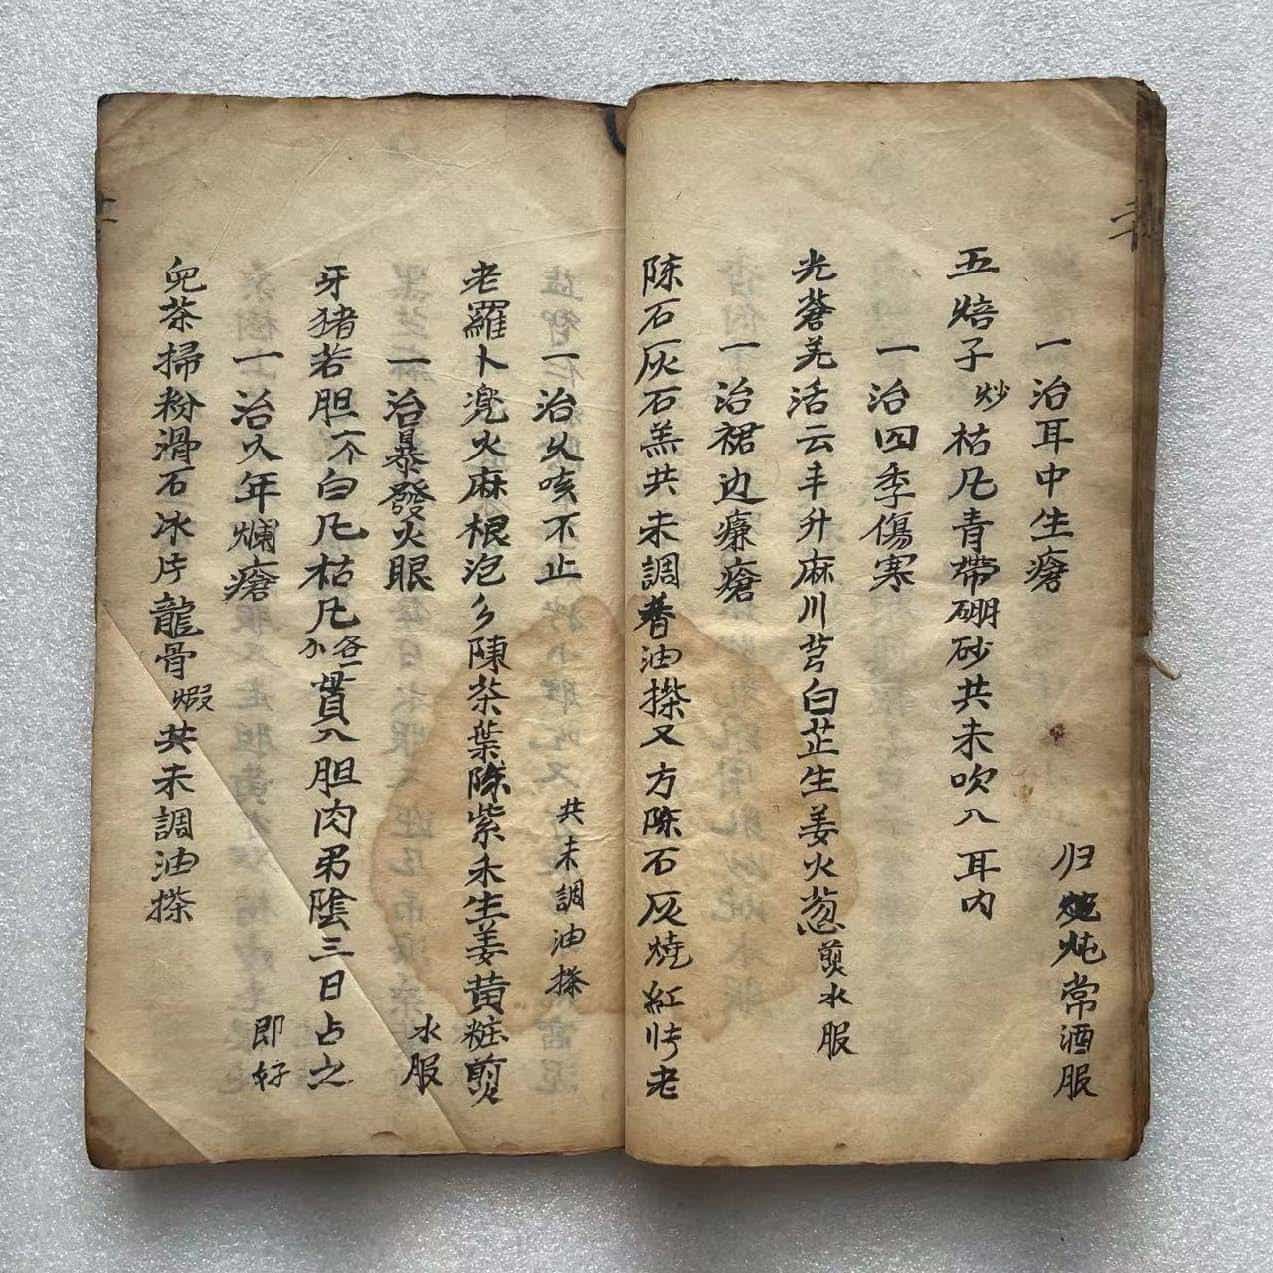 一治耳中生瘡
归炖常酒服
五焙子炒枯凡青帶硼砂共末吹入耳内
一治四季傷寒
光蒼羌活云丰升麻川芎白芷生姜火葱煎水服
一治裙边臁瘡
陈石灰石羔共末調香油搽又方陈石灰燒紅
老
一治久咳不止
共末調油搽
老羅卜兠火麻根泡乡陳茶葉陈紫禾生姜黄粧煎
水服
一治暴發火眼
牙猪若胆一个白凡枯凡各一分貫入胆肉弔陰三日占之
即好
一治久年爛瘡
兒茶掃粉滑石冰片龍骨煆共末調油搽